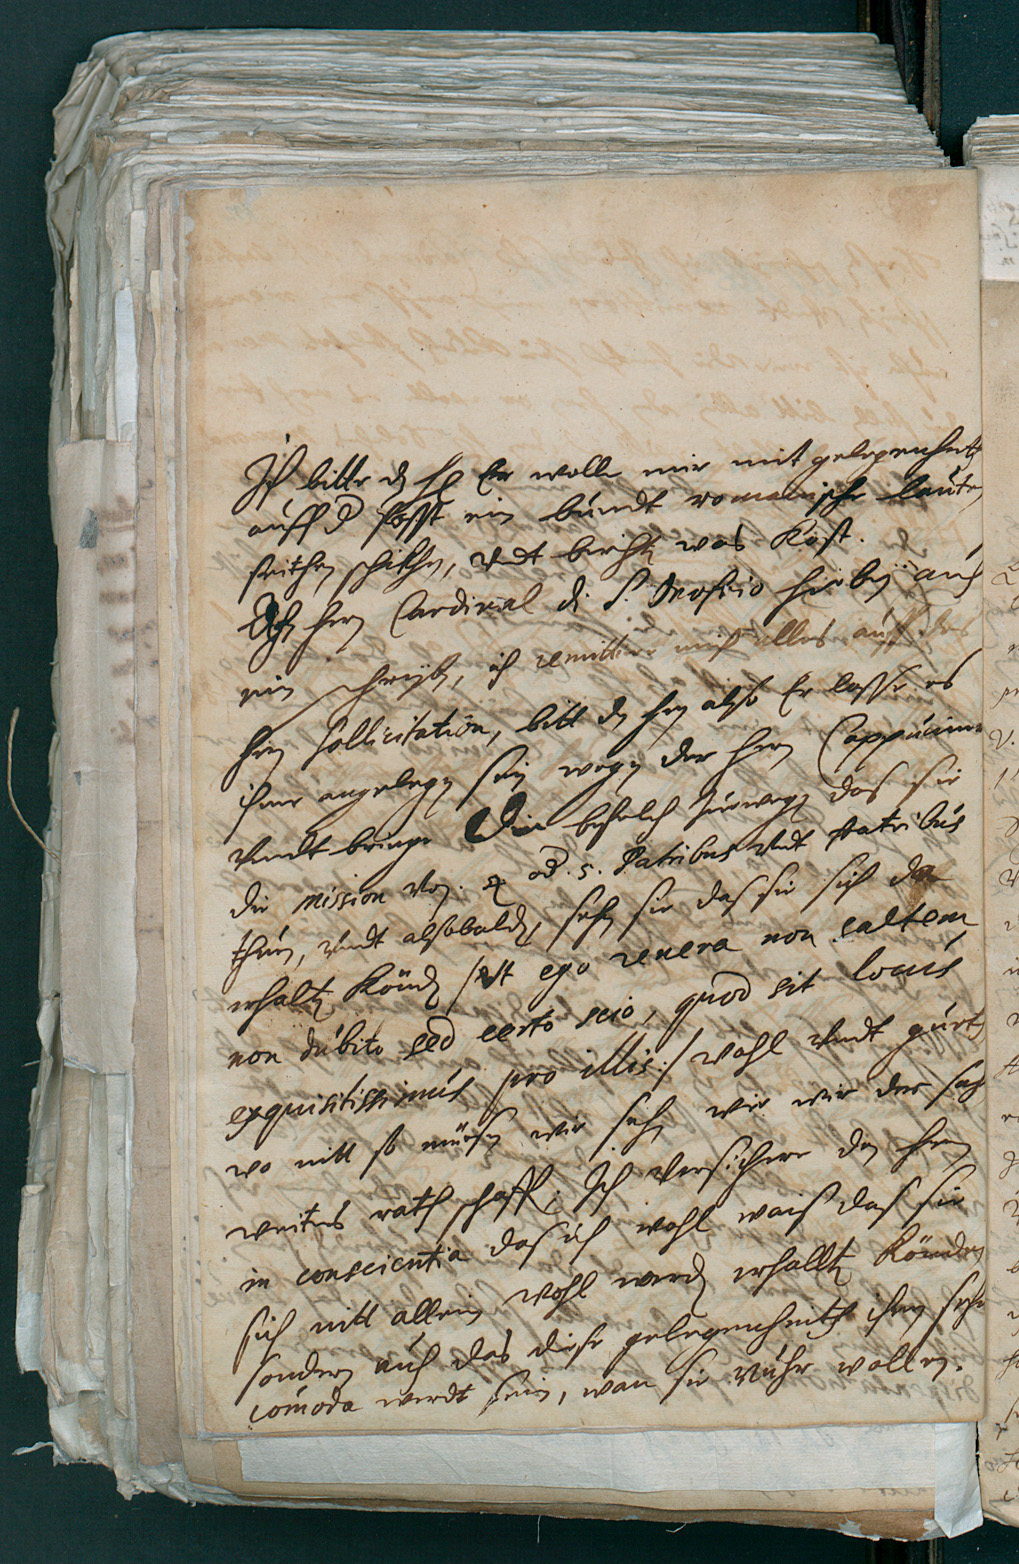 Ich bitte dn hr Er wolle mir mit gelegenheit
auff d post ein bundt romanische lauten
seithen schikhen, vndt berichten was kost.
hern Cardinal di S. Onofrio hierbeÿ auch
ein schreiben, ich remittiere mich alles auff des
hern sollicitation, bitt dn hern also Er lasse es
ihme angelegen sein wegen der hern Cappuciner
vndt bringe den befelch zuwegen das sie
die mission von 4 od. 5. Patribus vndt fratribus
thuen, vndt alsobalden, sehen sie das sie sich da
erhalten könden /: vt ego revera non saltem
non dubito sed certo scio, quod sit locus
exquisitissimus pro illis :/ wohl vndt guet,
wo nitt so müesen wir sehen wie wir der sach
weiters rath schaffen; Ich versichere den hern
in conscientia das ich wohl wais das sie
sich nitt allein wohl werden erhallten könden
sondern auch das diese gelegenheit ihnen sehr
comoda werdt sein, wan sie nuhr wollen.